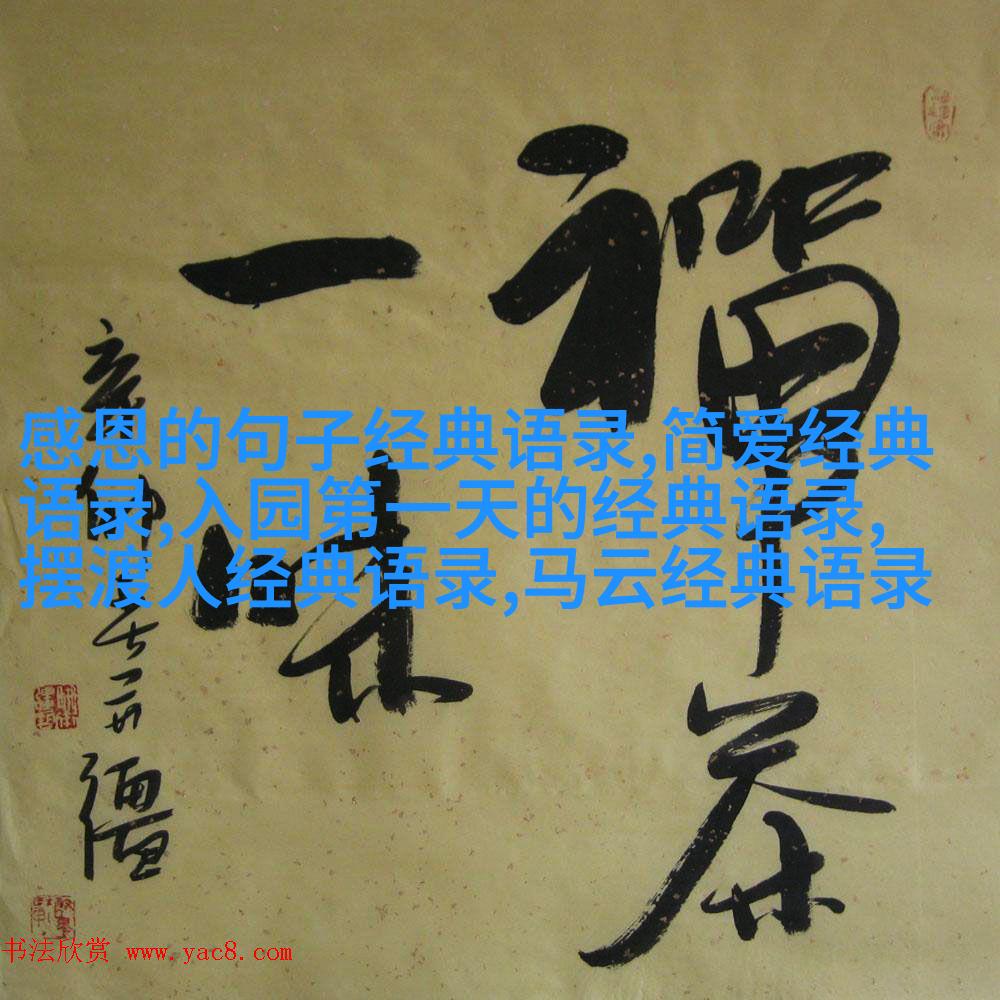 禪茶
一味
感恩的句子经典语录,简爱经典
语录,入园第一天的经典语录,
摆渡人经典语录,马云经典语录
书法欣赏 www.yac8.com